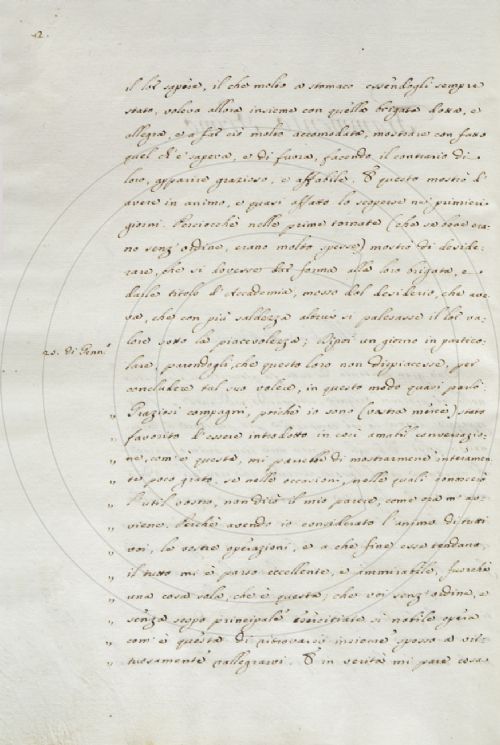 2.
il lor sapere, il che molto a stomaco essendogli sempre
stato, voleva allora insieme con quella brigata dotta, e
allegra, e a far ciò molto accomodata, mostrare con fatto
quel ch'e' sapeva, e di fuora, facendo il contrario di
loro, apparire grazioso, e affabile. E questo mostrò d'
avere in animo, e quasi affatto lo scoperse ne' primieri
giorni. Perciocchè nelle prime tornate (che se bene era-
no senz'ordine, erano molto spesse) mostrò di deside-
rare, che si dovesse dar forma alla loro brigata, e
darle titolo d'Accademia, mosso dal desiderio, che ave-
va, che con più saldezza altrui si palesasse il lor va-
lore sotto la piacevolezza; Dipoi un giorno in partico-
25. di Genn.º
lare, parendogli, che questo loro non dispiacesse, per
concludere tal suo volere, in questo modo quasi parlò.
„ Graziosi compagni, poichè io sono (vostra mercè) stato
„ favorito d'essere introdotto in così amabil conversazio-
„ ne, com'è questa, mi parrebbe di mostrarmene interamen-
„ te poco grato, se nelle occasioni, nelle quali conoscerò
„ l'util vostro, non dirò il mio parere, come ora m'av-
„ viene. Perchè avendo io considerato l'animo di tutti
„ voi, le vostre operazioni, e a che fine esse tendano,
„ il tutto mi è parso eccellente, e ammirabile, fuorchè
„ una cosa sola, che è questa; che voi senz'ordine, e
„ senza scopo principale esercitiate sì nobile opera
„ com'è questa di ritrovarvi insieme spesso a vir-
„ tuosamente rallegrarvi. E in verità mi pare cosa